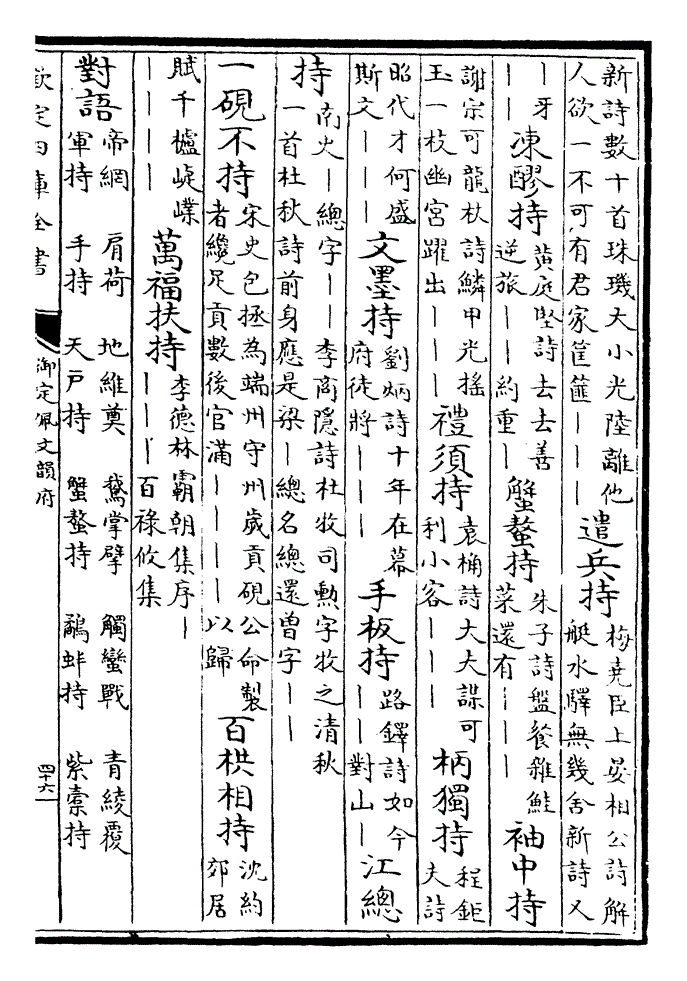 新詩數十首珠璣大小光陸離他
人欲一不可有君家筐篚｜｜｜
遣兵持
梅堯臣上晏相公詩解
艇水驛無幾舍新詩又
｜牙
｜｜
凍醪持
黄庭堅詩去去善
逆旅｜｜｜約重｜
蟹螯持
朱子詩盤餐雜鮭
菜還有｜｜｜
袖中持
謝宗可龍杖詩鱗甲光摇
玉一枝幽宫躍出｜｜｜
禮須持
袁桷詩大夫謀可
利小客｜｜｜
柄獨持
程鉅
夫詩
昭代才何盛
斯文｜｜｜
文墨持
劉炳詩十年在幕
府徒將｜｜｜
手板持
路鐸詩如今
｜｜｜對山｜
江總
持
南史｜總字｜｜李商隱詩杜牧司勲字牧之清秋
一首杜秋詩前身應是梁｜總名總還曽字｜｜
一硯不持
宋史包拯為端州守州歲貢硯公命製
者纔足貢數後官滿｜｜｜｜以歸
百栱相持
沈約
郊居
賦千櫨崨嶫
｜｜｜｜
萬福扶持
李德林霸朝集序｜
｜｜｜百祿攸集
對語
帝網　肩荷　地維奠　鵞掌擘　觸蠻戰　青綾覆
軍持　手持　天戸持　蟹螯持　鷸蚌持　紫橐持
欽定四庫全書
御定佩文韻府
四十六